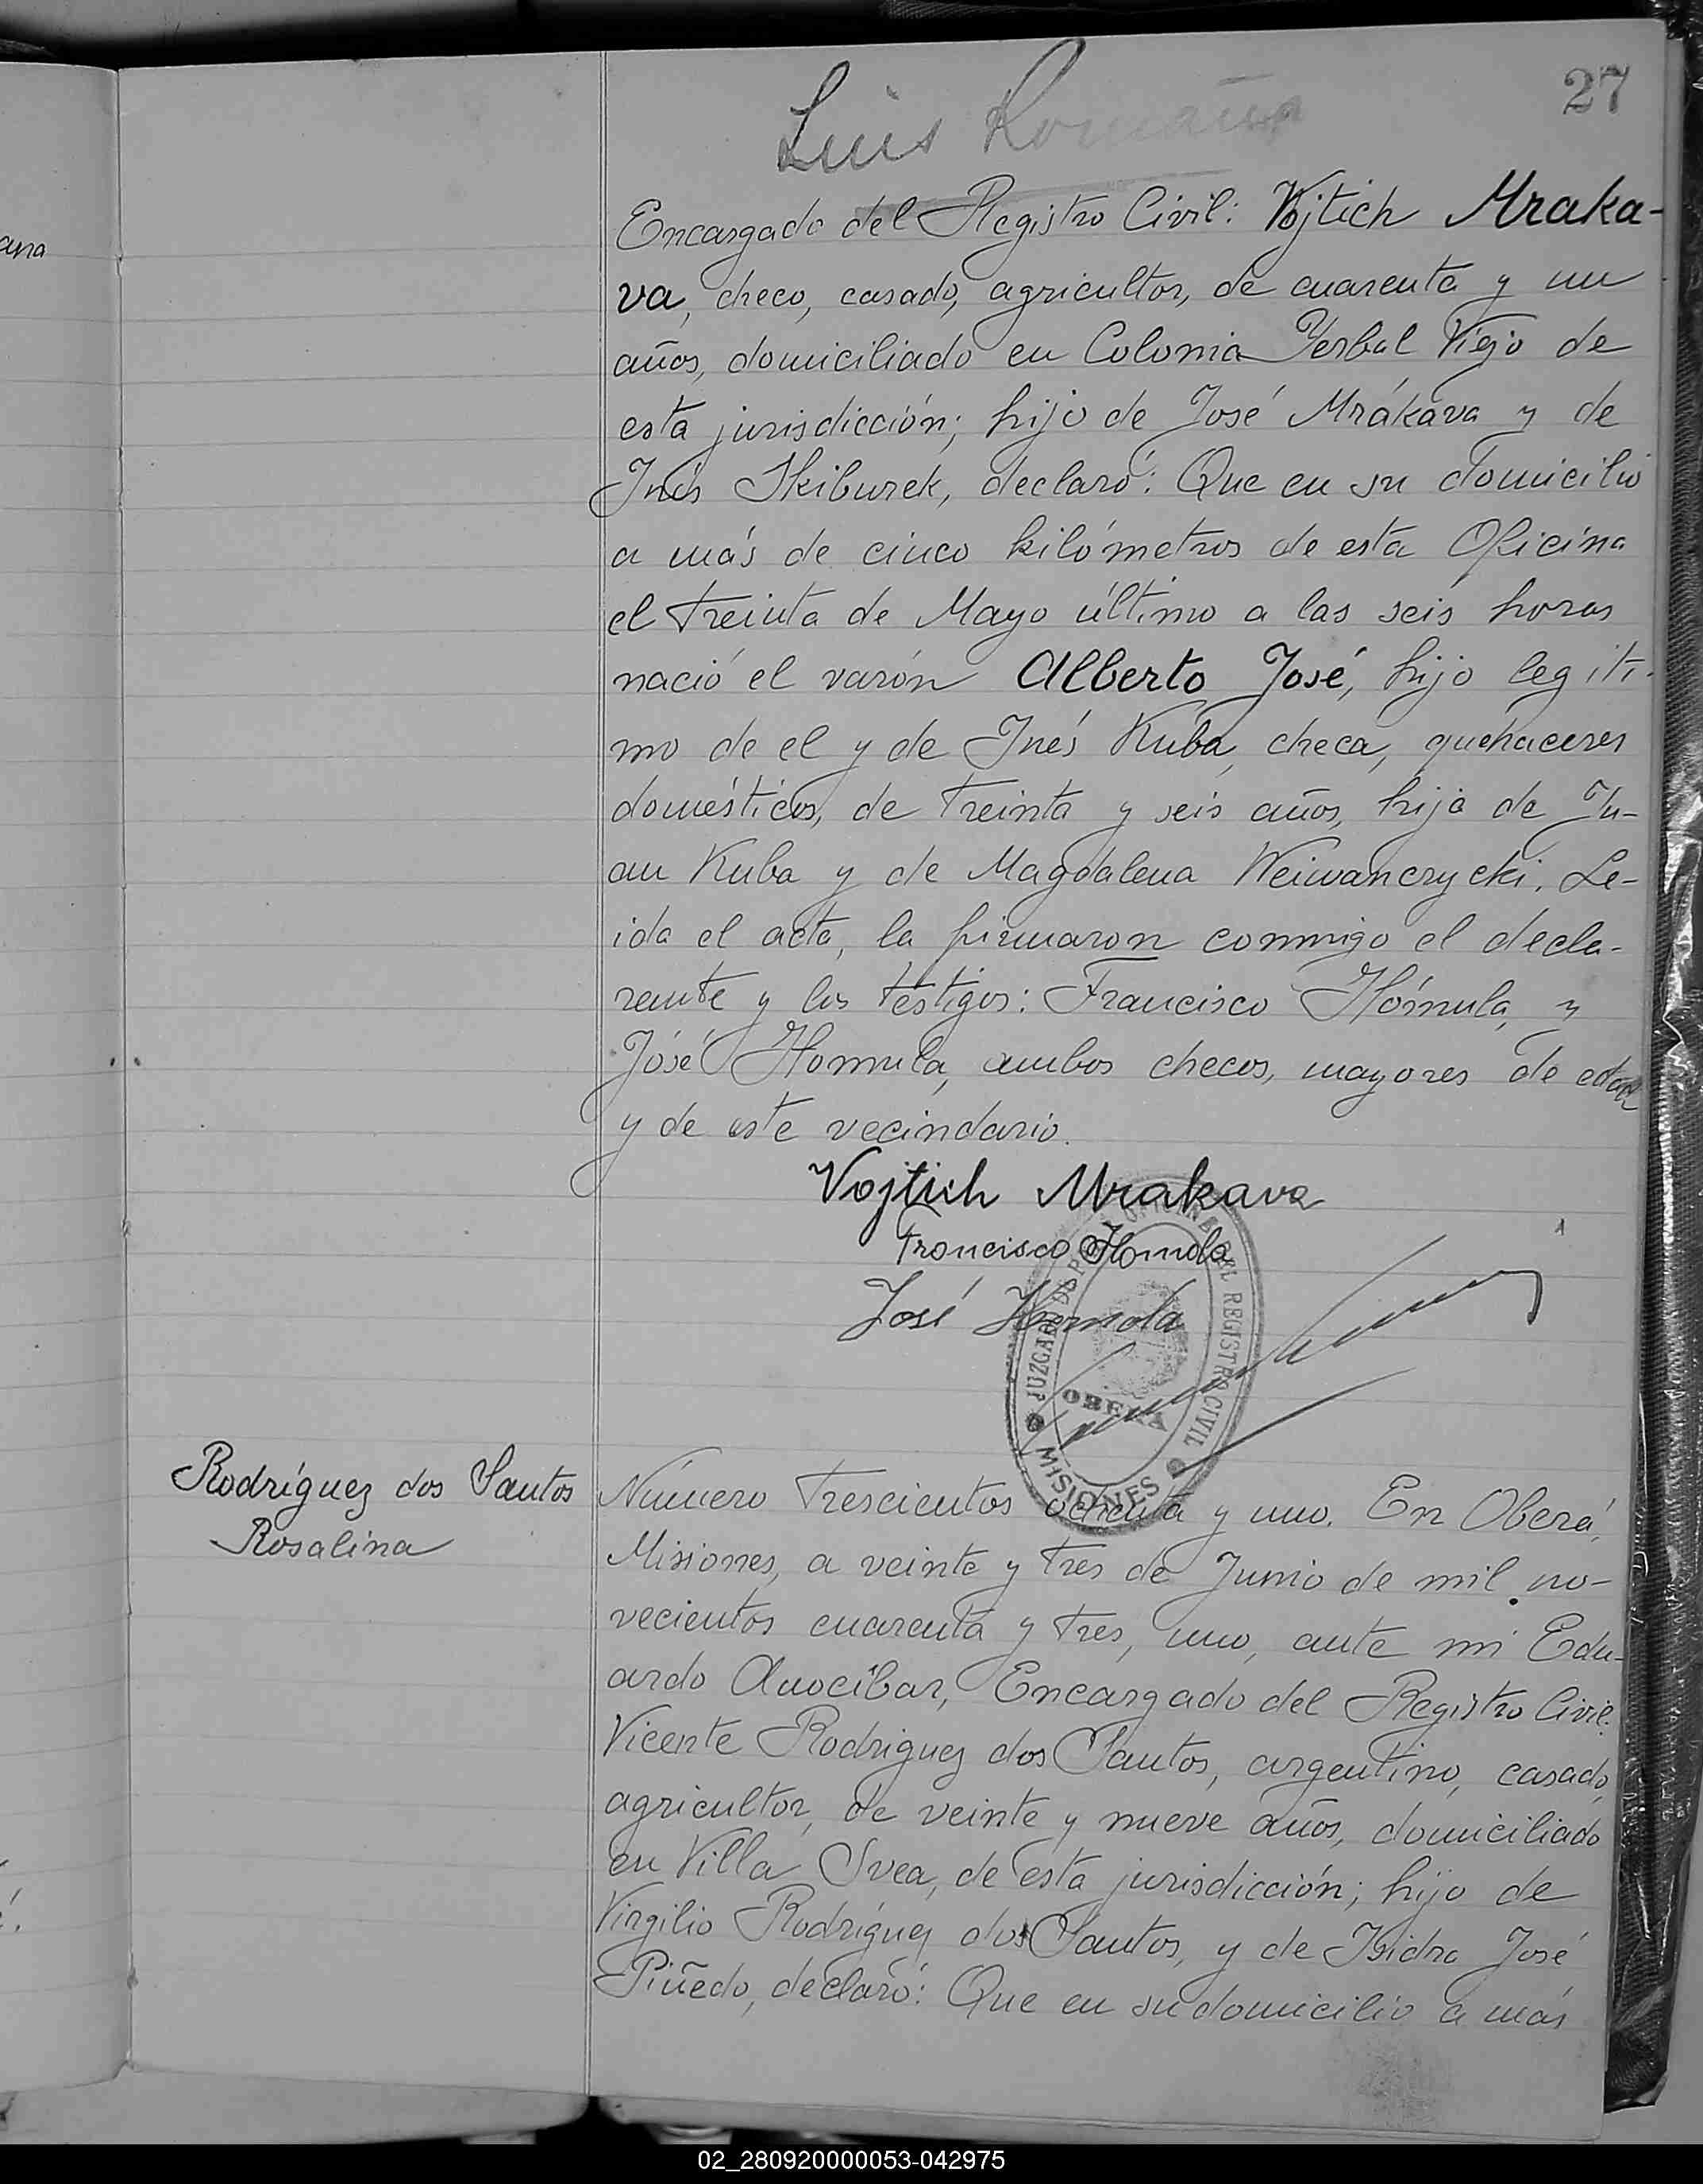 27
Luis Romaña
ana
Encargado del Registro Civil: Vojtich Mraka-
va, checo, casado, agricultor, de cuarenta y un
años, domiciliado en Colonia Yerbal Viejo de
esta jurisdicción; hijo de José Mrákava y de
Inés Skiburek, declaró: Que en su domicilio
a más de cinco kilómetros de esta Oficina
el treinta de Mayo último a las seis horas
nació el varón Alberto José, hijo legiti-
mo de el y de Inés Kuba, checa, quehaceres
domésticos, de treinta y seis años, hija de Ju-
an Kuba y de Magdalena Weiwanczycki. Le-
ida el acta, la firmaron conmigo el decla-
rante y los testigos: Francisco Hómula, y
José Homula, ambos checos, mayores de edad
y de este vecindario.
Vojtich Mrakava
Francisco Homola
José Homola
JUZGADO DE PAZ OFICINA DEL REGISTRO CIVIL
OBERA
MISIONES
Rodríguez dos Santos
Rosalina
Número trescientos ochenta y uno. En Oberá,
Misiones, a veinte y tres de Junio de mil no-
vecientos cuarenta y tres, uno, ante mi Edu-
ardo Anocíbar, Encargado del Registro Civil:
Vicente Rodriguez dos Santos, argentino, casado,
agricultor, de veinte y nueve años, domiciliado
en Villa Svea, de esta jurisdicción; hijo de
Virgilio Rodríguez dos Santos, y de Isidra José
Piñedo, declaró: Que en su domicilio a más
02_280920000053-042975